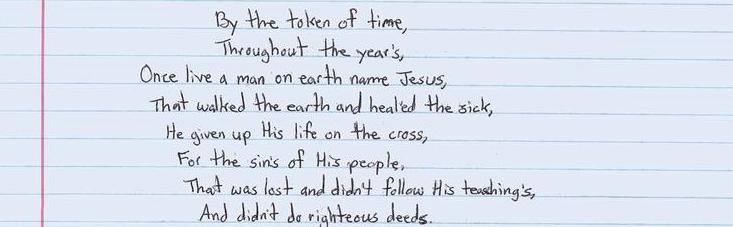 By the token of time,
Throughout the year's,
Once live a man on earth name Jesus,
That walked the earth and heal'ed the sick,
He given up His life on the cross,
For the sin's of His people,
That was lost and didn't follow His teaching's,
And didn't do righteous deeds.